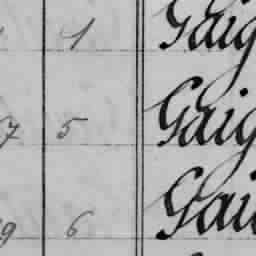 1 Gaig
7 5 Gaig
9 6 Gai